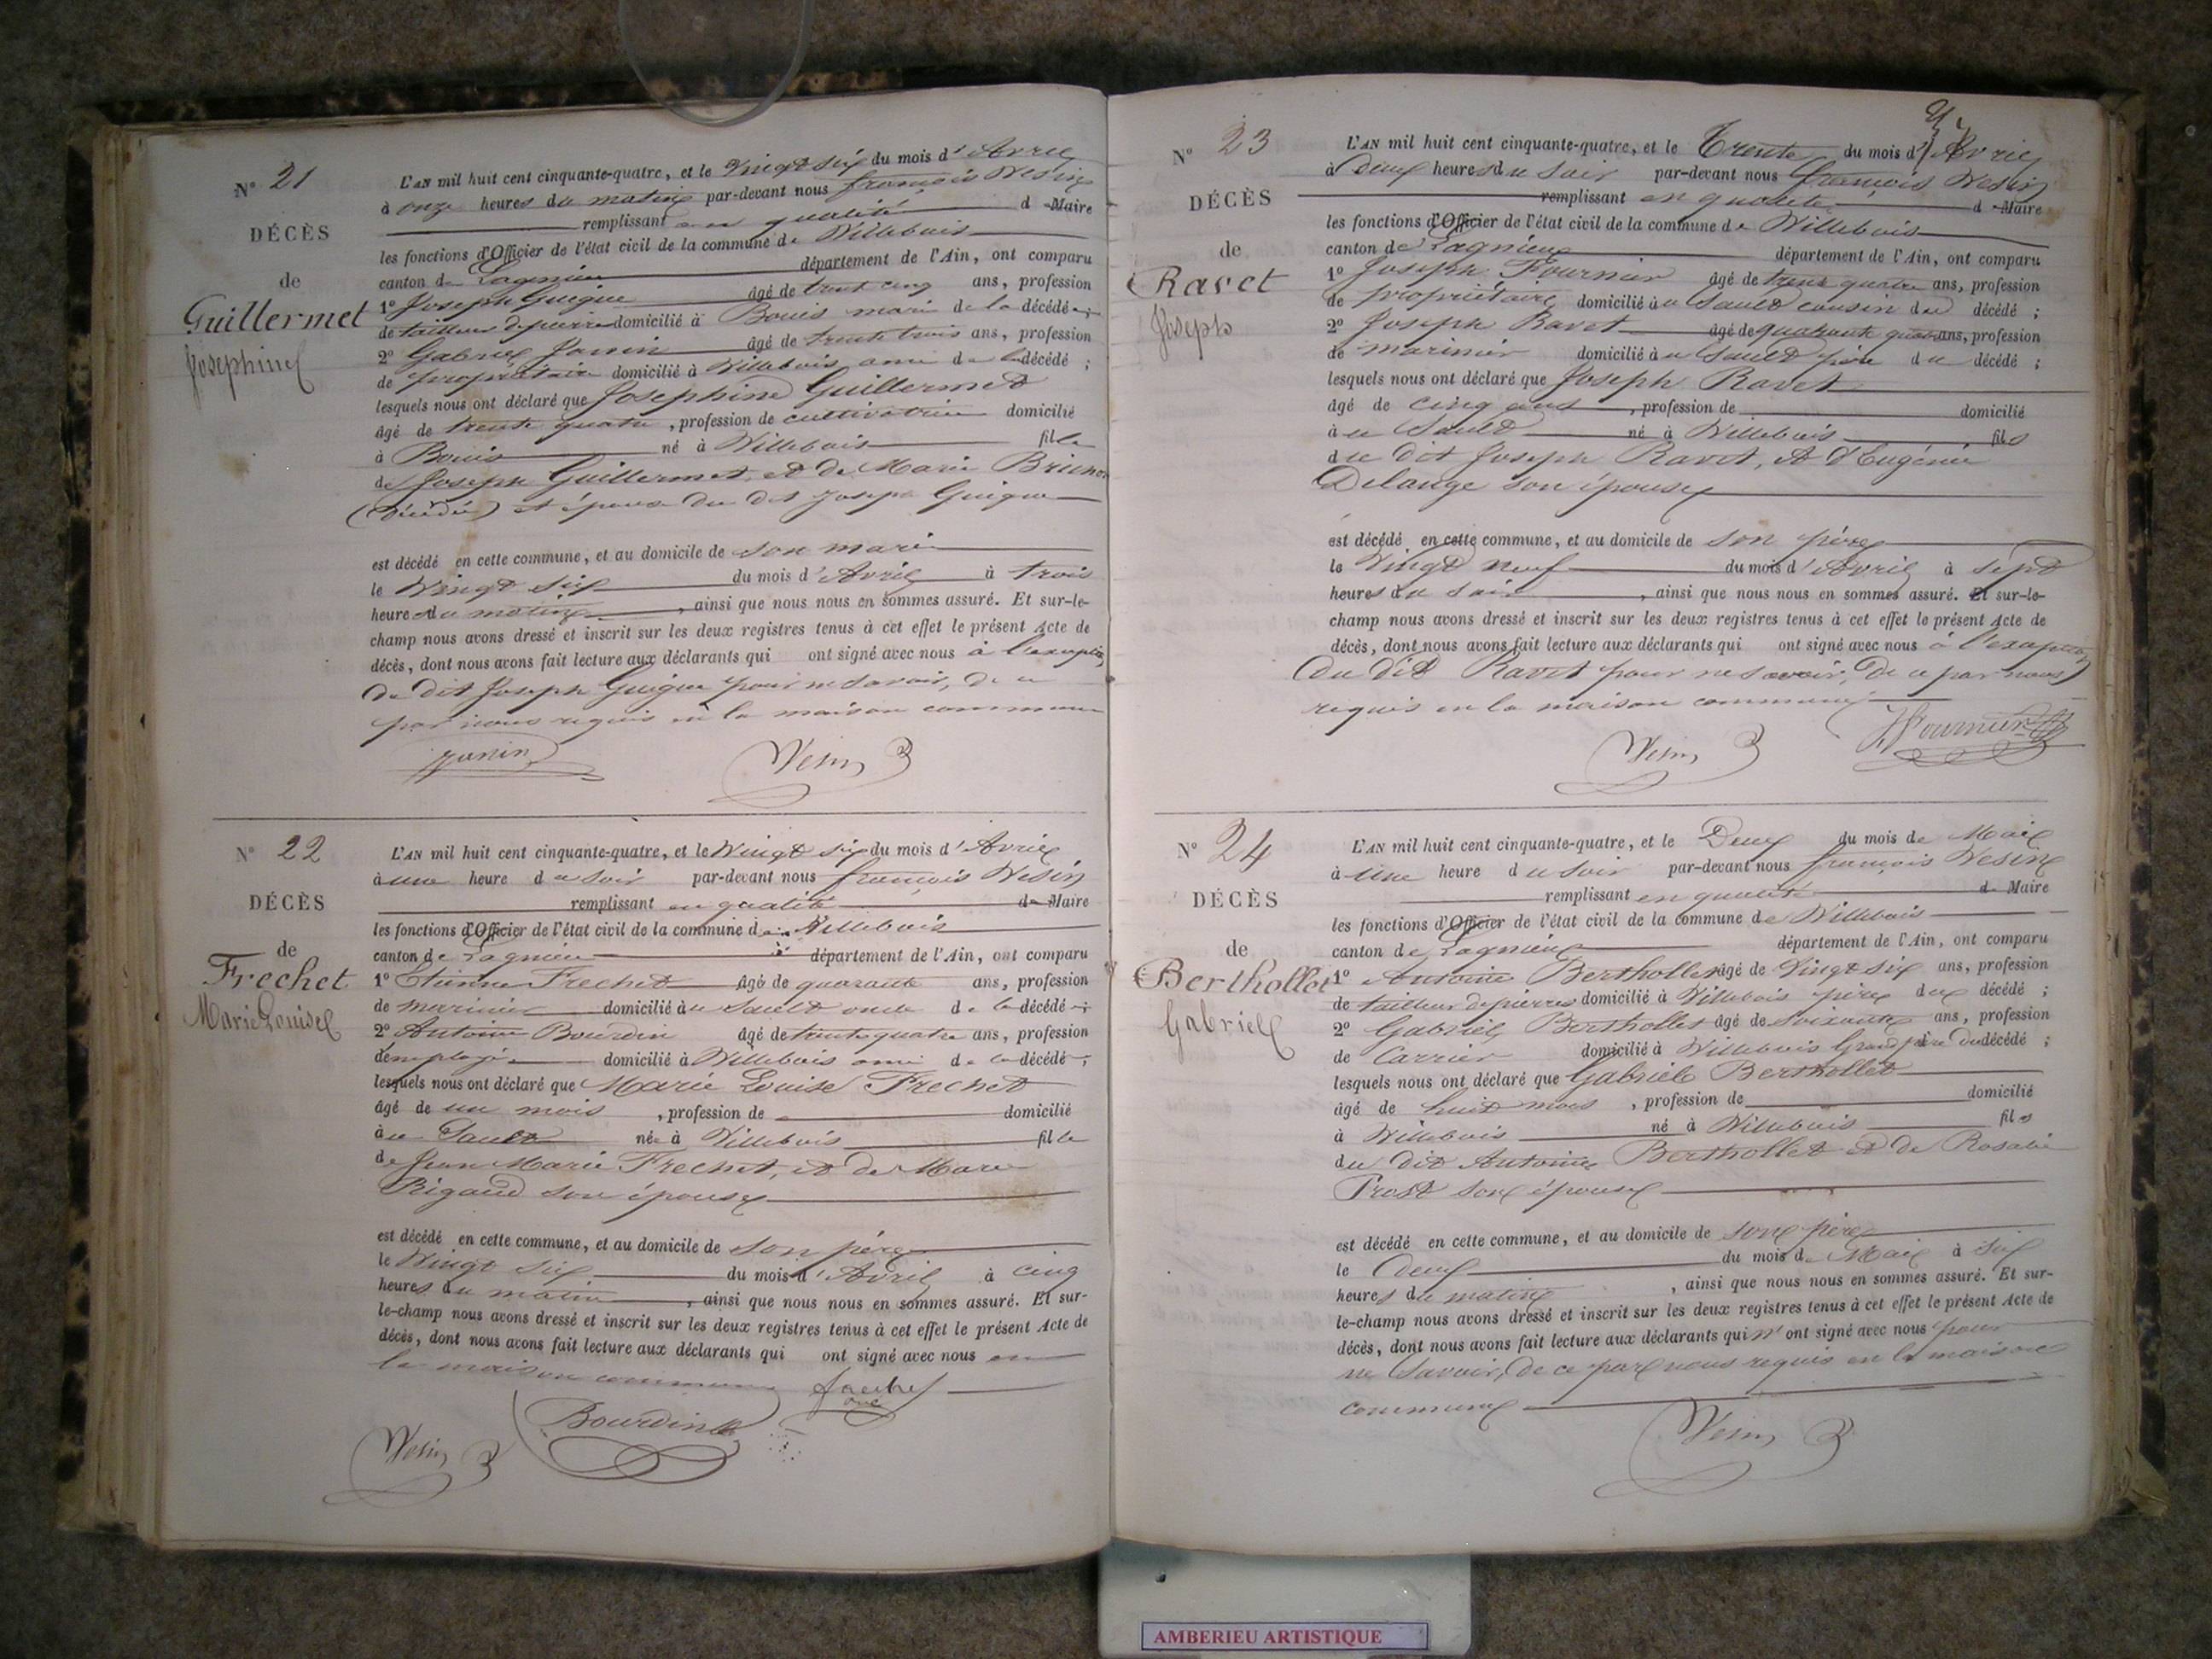 N° 21
DÉCÈS
de
Guillermet
Josephine
L'AN mil huit cent cinquante-quatre, et le Vingt six du mois d'Avril
à onze heures du matin par-devant nous françois Vesin
remplissant en qualité de Maire
les fonctions d'Officier de l'état civil de la commune de Villebois
canton de Lagnieu département de l'Ain, ont comparu
1° Joseph Guigue âgé de trent cinq ans, profession
de tailleur de pierre domicilié à Bouis mari de la décédée;
2° Gabriel Janin âgé de trente trois ans, profession
de propriétaire domicilié à Villebois ami de la décédé;
lesquels nous ont déclaré que Josephine Guillermet
âgé de trente quatre, profession de cultivatrice domicilié
à Bouis né à Villebois fille
de Joseph Guillermet, et de Marie
(décédés) et épouse du dit Joseph Guigue
est décédé en cette commune, et au domicile de son mari
le Vingt six du mois d'Avril à trois
heures du matin, ainsi que nous nous en sommes assuré. Et sur-le-
champ nous avons dressé et inscrit sur les deux registres tenus à cet effet le présent Acte de
décès, dont nous avons fait lecture aux déclarants qui ont signé avec nous à l'exception
du dit Joseph Guigue pour ne savoir, de ce
par nous requis en la maison commune
Janin Vesin
N° 22
DÉCÈS
de
Frechet
Marie Louise
L'AN mil huit cent cinquante-quatre, et le Vingt six du mois d'Avril
à une heure du soir par-devant nous françois Vesin
remplissant en qualité de Maire
les fonctions d'Officier de l'état civil de la commune de Villebois
canton de Lagnieu département de l'Ain, ont comparu
1° Etienne Frechet âgé de quarante ans, profession
de marinier domicilié au Sault oncle de la décédée;
2° Antoine Bourdin âgé de trente quatre ans, profession
d'employé domicilié à Villebois ami de la décédé;
lesquels nous ont déclaré que Marie Louise Frechet
âgé de un mois, profession de domicilié
au Sault née à Villebois fille
de Jean Marie Frechet, et de Marie
Rigaud son épouse
est décédé en cette commune, et au domicile de son père
le Vingt six du mois d'Avril à cinq
heures du matin, ainsi que nous nous en sommes assuré. Et sur-
le-champ nous avons dressé et inscrit sur les deux registres tenus à cet effet le présent Acte de
décès, dont nous avons fait lecture aux déclarants qui ont signé avec nous en
la maison commune
Vesin Bourdin
N° 23
DÉCÈS
de
Ravet
Joseph
L'AN mil huit cent cinquante-quatre, et le Trente du mois d'Avril
à deux heures du soir par-devant nous françois Vesin
remplissant en qualité de Maire
les fonctions d'Officier de l'état civil de la commune de Villebois
canton de Lagnieu département de l'Ain, ont comparu
1° Joseph Fournier âgé de trente quatre ans, profession
de propriétaire domicilié au Sault cousin du décédé;
2° Joseph Ravet âgé de quarante quatre ans, profession
de marinier domicilié au Sault père du décédé;
lesquels nous ont déclaré que Joseph Ravet
âgé de cinq ans, profession de domicilié
au Sault né à Villebois fils
du dit Joseph Ravet, et d'Eugénie
Delange son épouse
est décédé en cette commune, et au domicile de son père
le Vingt neuf du mois d'Avril à sept
heures du soir, ainsi que nous nous en sommes assuré. Et sur-le-
champ nous avons dressé et inscrit sur les deux registres tenus à cet effet le présent Acte de
décès, dont nous avons fait lecture aux déclarants qui ont signé avec nous à l'exception
du dit Ravet pour ne savoir, de ce par nous
requis en la maison commune
Vesin J Fournier
N° 24
DÉCÈS
de
Berthollet
Gabriel
L'AN mil huit cent cinquante-quatre, et le Deux du mois de Mai
à une heure du soir par-devant nous françois Vesin
remplissant en qualité de Maire
les fonctions d'Officier de l'état civil de la commune de Villebois
canton de Lagnieu département de l'Ain, ont comparu
1° Antoine Berthollet âgé de Vingt six ans, profession
de tailleur de pierres domicilié à Villebois père du décédé;
2° Gabriel Berthollet âgé de soixante ans, profession
de Carrier domicilié à Villebois Grand père du décédé;
lesquels nous ont déclaré que Gabriel Berthollet
âgé de huit mois, profession de domicilié
à Villebois né à Villebois fils
du dit Antoine Berthollet et de Rosalie
Trost son épouse
est décédé en cette commune, et au domicile de son père
le deux du mois de Mai à six
heures du matin, ainsi que nous nous en sommes assuré. Et sur-
le-champ nous avons dressé et inscrit sur les deux registres tenus à cet effet le présent Acte de
décès, dont nous avons fait lecture aux déclarants qui n'ont signé avec nous pour
ne savoir, de ce par nous requis en la maison
commune
Vesin
AMBERIEU ARTISTIQUE